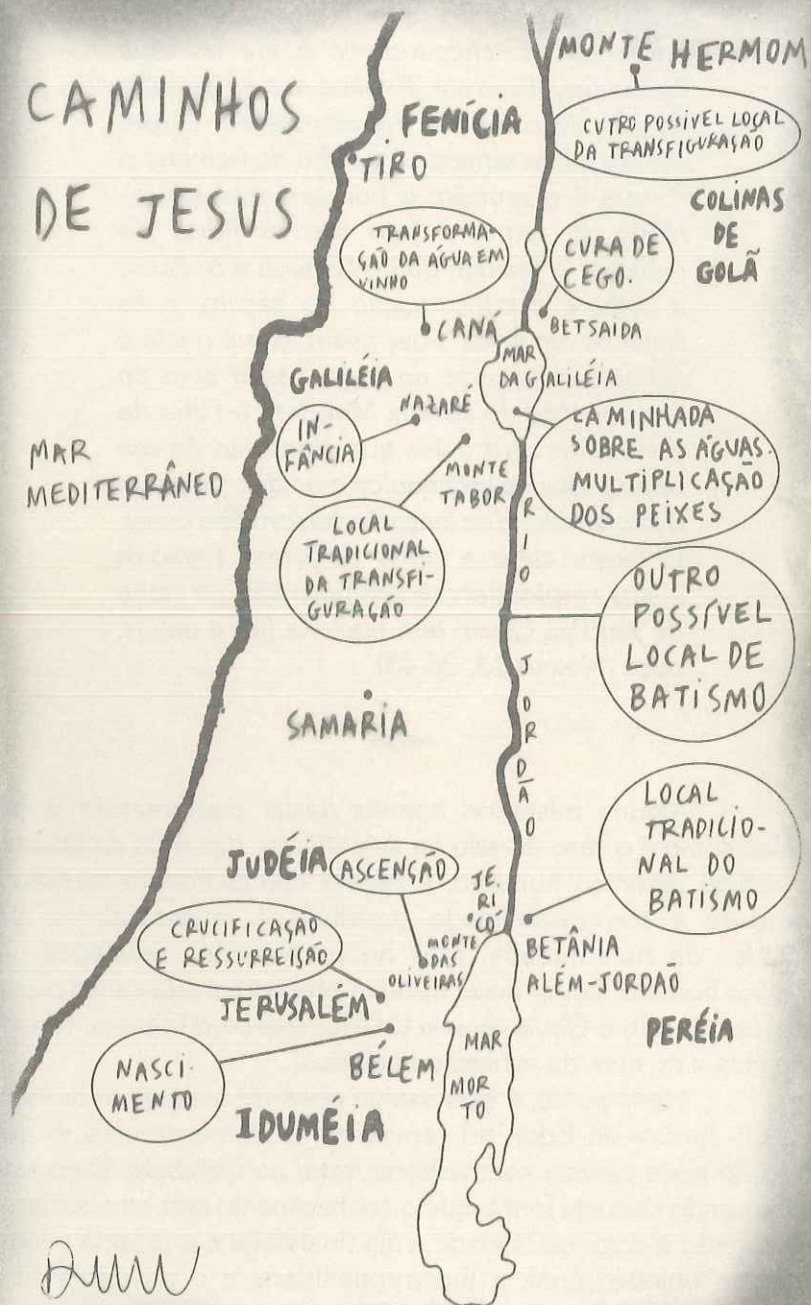 CAMINHOS
DE JESUS
MONTE HERMOM
CUTRO POSSÍVEL LOCAL
DA TRANSFIGURAÇÃO
FENÍCIA
TIRO
COLINAS
DE
GOLÃ
TRANSFORMA-
ÇÃO DA ÁGUA EM
VINHO
CURA DE
CEGO.
CANÁ
BETSAIDA
MAR
DA GALILÉIA
GALILÉIA
NAZARÉ
IN-
FÂNCIA
MAR
MEDITERRÂNEO
MONTE
TABOR
CAMINHADA
SOBRE AS ÁGUAS.
MULTIPLICAÇÃO
DOS PEIXES
LOCAL
TRADICIONAL
DA TRANSFI-
GURAÇÃO
RIO JORDÃO
OUTRO
POSSÍVEL
LOCAL DE
BATISMO
SAMARIA
LOCAL
TRADICIO-
NAL DO
BATISMO
JUDÉIA
ASCENÇÃO
JE.
RI
CÓ
CRUCIFICAÇÃO
E RESSURREISÃO
MONTE
DAS
OLIVEIRAS
BETÂNIA
ALÉM-JORDAÕ
JERUSALÉM
PERÉIA
NASCI-
MENTO
BÉLEM
MAR
MOR
TO
IDUMÉIA